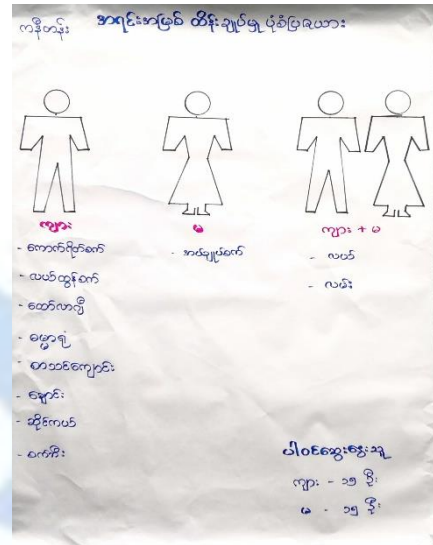 ကနီတန်း
အရင်းအမြစ် ထိန်းချုပ်မှု ပုံစံပြဇယား
ကျား
- ကောက်ရိတ်စက်
- လယ်ထွန်စက်
- ထော်လာဂျီ
- ဓမ္မာရုံ
- စာသင်ကျောင်း
- ချောင်း
- ဆိုင်ကယ်
- စက်ဘီး
မ
- အပ်ချုပ်စက်
ကျား + မ
- လယ်
- လမ်း
ပါဝင်ဆွေးနွေးသူ
ကျား - ၁၅ ဦး
မ - ၁၅ ဦး